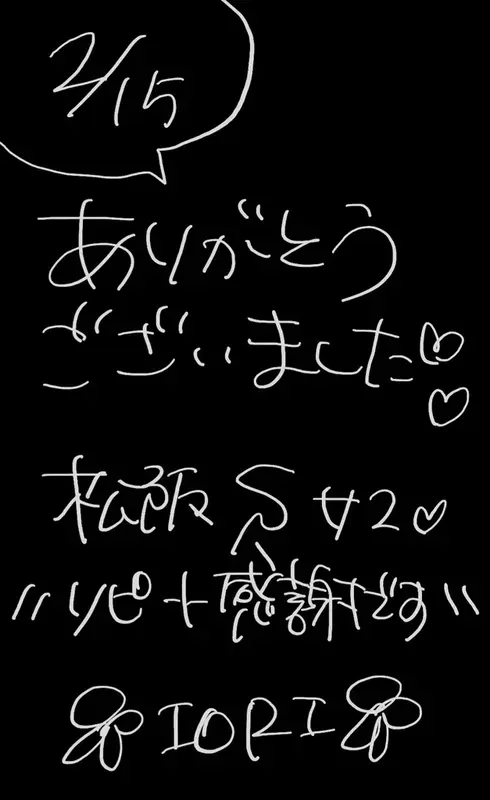 2/15
ありがとう
ございました♡♡
松阪 S 女2♡
〃リピート感謝です〃
IORI